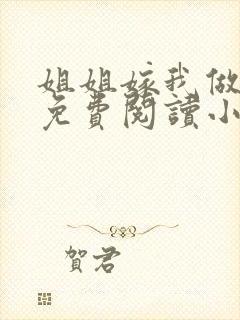 姐姐嫁我做
免費閱讀小
賀君